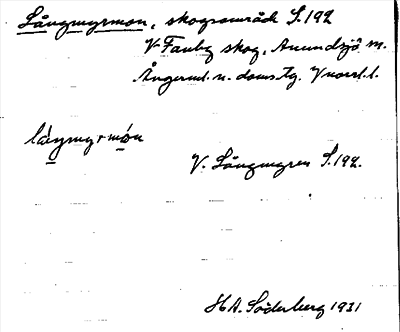 Långmyrmon, skogsområde S.192
V Fanby skog, Anundsjö sn.
Ångerml. n. doms.tg. Vnorrl.l.
långmyrmón
V. Långmyren S.192.
H.A. Söderberg 1931